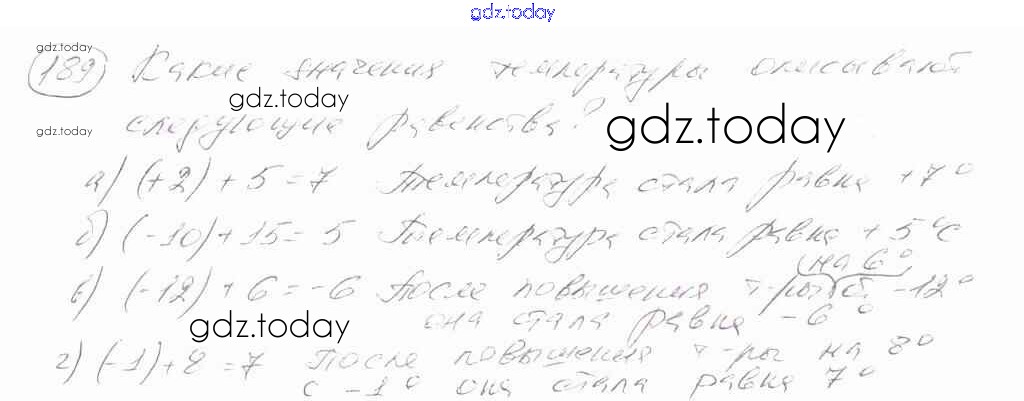 gdz.today
gdz.today
189 Какие значения температуры описывают
gdz.today
gdz.today следующие равенства? gdz.today
а) (+2) + 5 = 7 Температура стала равна +7°
б) (-10) + 15 = 5 Температура стала равна +5°C
на 6°
в) (-12) + 6 = -6 После повышения т-ры с -12°
gdz.today она стала равна -6°
г) (-1) + 8 = 7 После повышения т-ры на 8°
с -1° она стала равна 7°